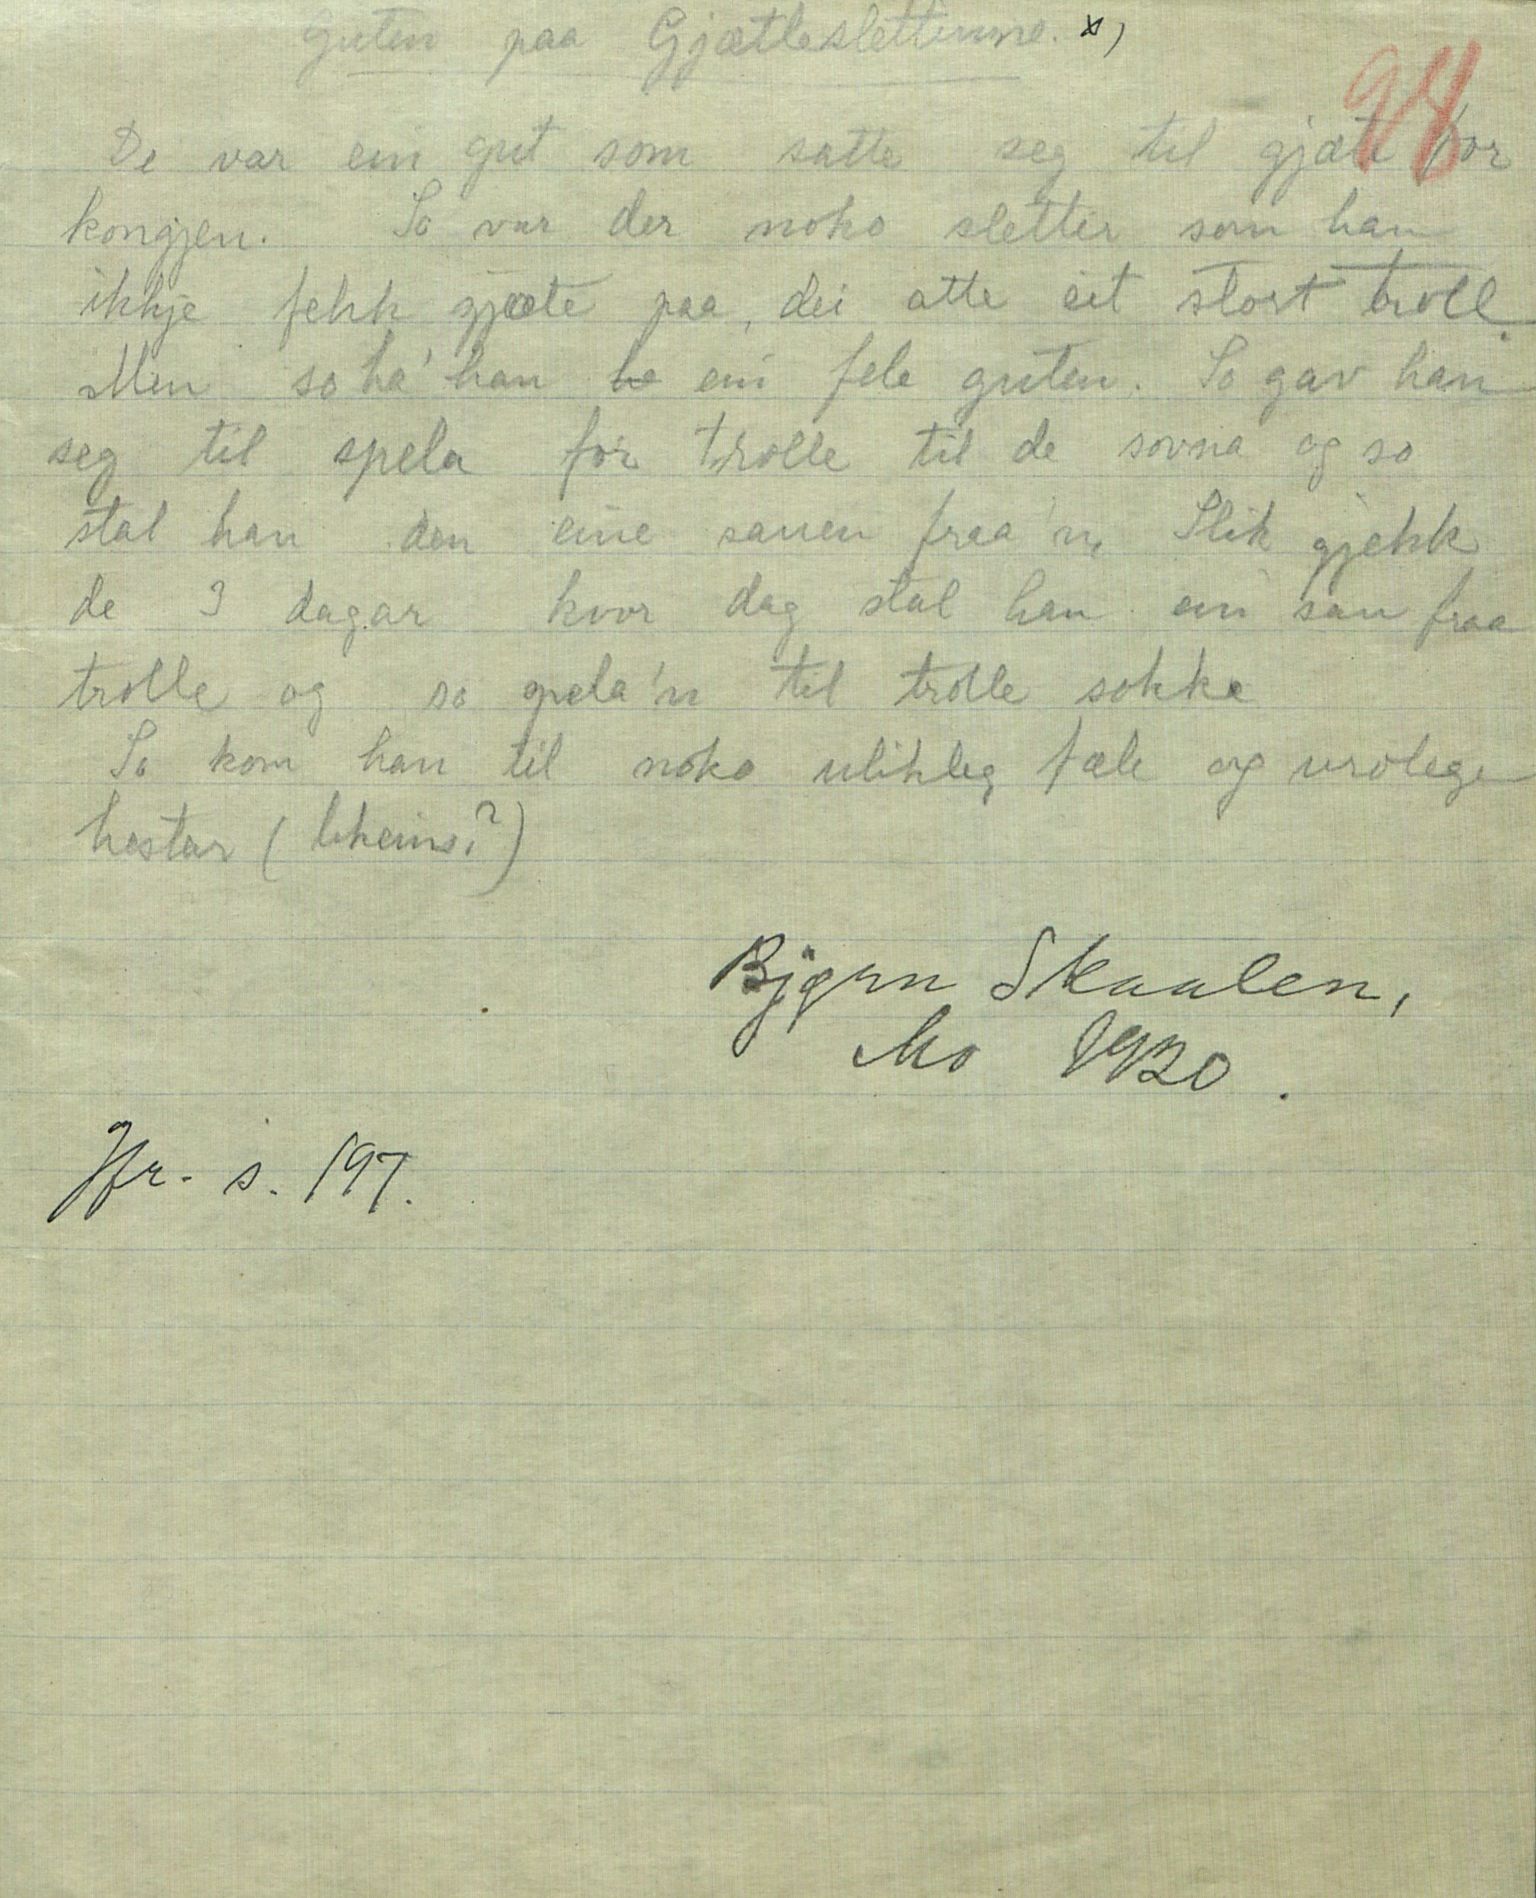 Guten paa Gjætleslettinne. x)
98
De var ein gut som sette seg til gjæte for
kongjen. So var der noko sletter som han
ikkje fekk gjæte paa, dei atte eit stort troll.
Men so ha' han ha ein fele guten. So gav han
seg til spela for trolle til de sovna og so
stal han den eine sauen fraa'n. Slik gjekk
de 3 dagar kvor dag stal han ein sau fraa
trolle og so spela'n til trolle sokka
So kom han til noko ulikleg fæle og urolege
hestar (               ?)
Bjørn Skaalen,
Mo 1920.
Jfr. s. 197.